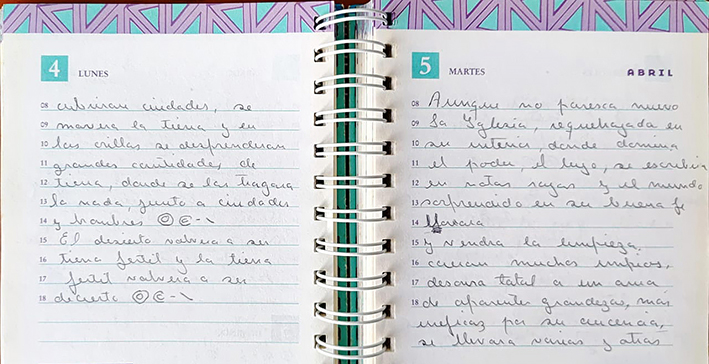 4 LUNES
08 cubriran ciudades, se
09 movera la tierra y en
10 las orillas se desprenderan
11 grandes cantidades de
12 tierra, donde se las tragara
13 la nada, junto a ciudades
14 y hombres
15 El desierto volvera a ser
16 tierra fertil y la tierra
17 fertil volvera a ser
18 decierto
5 MARTES ABRIL
08 Aunque no paresca nuevo
09 La Yglesia, requebajada en
10 su interior, donde domina
11 el poder, el lujo, se escribira
12 en notas rojas y el mundo
13 sorprendido en su buena fe
14 llorara
15 y vendra la limpieza,
16 caeran muchos impios,
17 total a un ama
18 de aparentes grandezas, mas
ineficaz por su
se llevara varias y otras